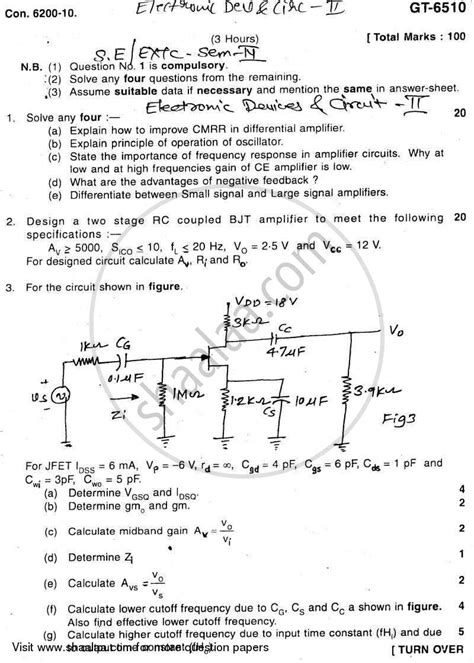 Electronic Dev & Circ - II
Con. 6200-10. GT-6510
(3 Hours) [ Total Marks : 100
S.E / EXTC - Sem - IV
N.B. (1) Question No. 1 is compulsory.
(2) Solve any four questions from the remaining.
(3) Assume suitable data if necessary and mention the same in answer-sheet.
Electronic Devices & Circuit - II
1. Solve any four :— 20
(a) Explain how to improve CMRR in differential amplifier.
(b) Explain principle of operation of oscillator.
(c) State the importance of frequency response in amplifier circuits. Why at
low and at high frequencies gain of CE amplifier is low.
(d) What are the advantages of negative feedback ?
(e) Differentiate between Small signal and Large signal amplifiers.
2. Design a two stage RC coupled BJT amplifier to meet the following 20
specifications :—
A_V ≥ 5000, S_ICO ≤ 10, f_L ≤ 20 Hz, V_O = 2·5 V and V_CC = 12 V.
For designed circuit calculate A_v, R_i and R_o.
3. For the circuit shown in figure.
VDD = 18V
3kΩ
1kΩ C_G
C_C
4.7μF
V_o
0.1μF
Zi
υs
1MΩ
1.2kΩ
C_S
10μF
3.9kΩ
Fig3
For JFET I_DSS = 6 mA, V_p = –6 V, r_d = ∞, C_gd = 4 pF, C_gs = 6 pF, C_ds = 1 pF and
C_wi = 3pF, C_wo = 5 pF.
(a) Determine V_GSQ and I_DSQ. 4
(b) Determine gm_o and gm. 2
(c) Calculate midband gain A_v = v_o / v_i 2
(d) Determine Z_i 1
(e) Calculate A_vs = v_o / v_s 2
(f) Calculate lower cutoff frequency due to C_G, C_S and C_C a shown in figure. 4
Also find effective lower cutoff frequency.
(g) Calculate higher cutoff frequency due to input time constant (fH_i) and due 5
Visit www.shaalaa.com for more question papers
[ TURN OVER
shaalaa.com